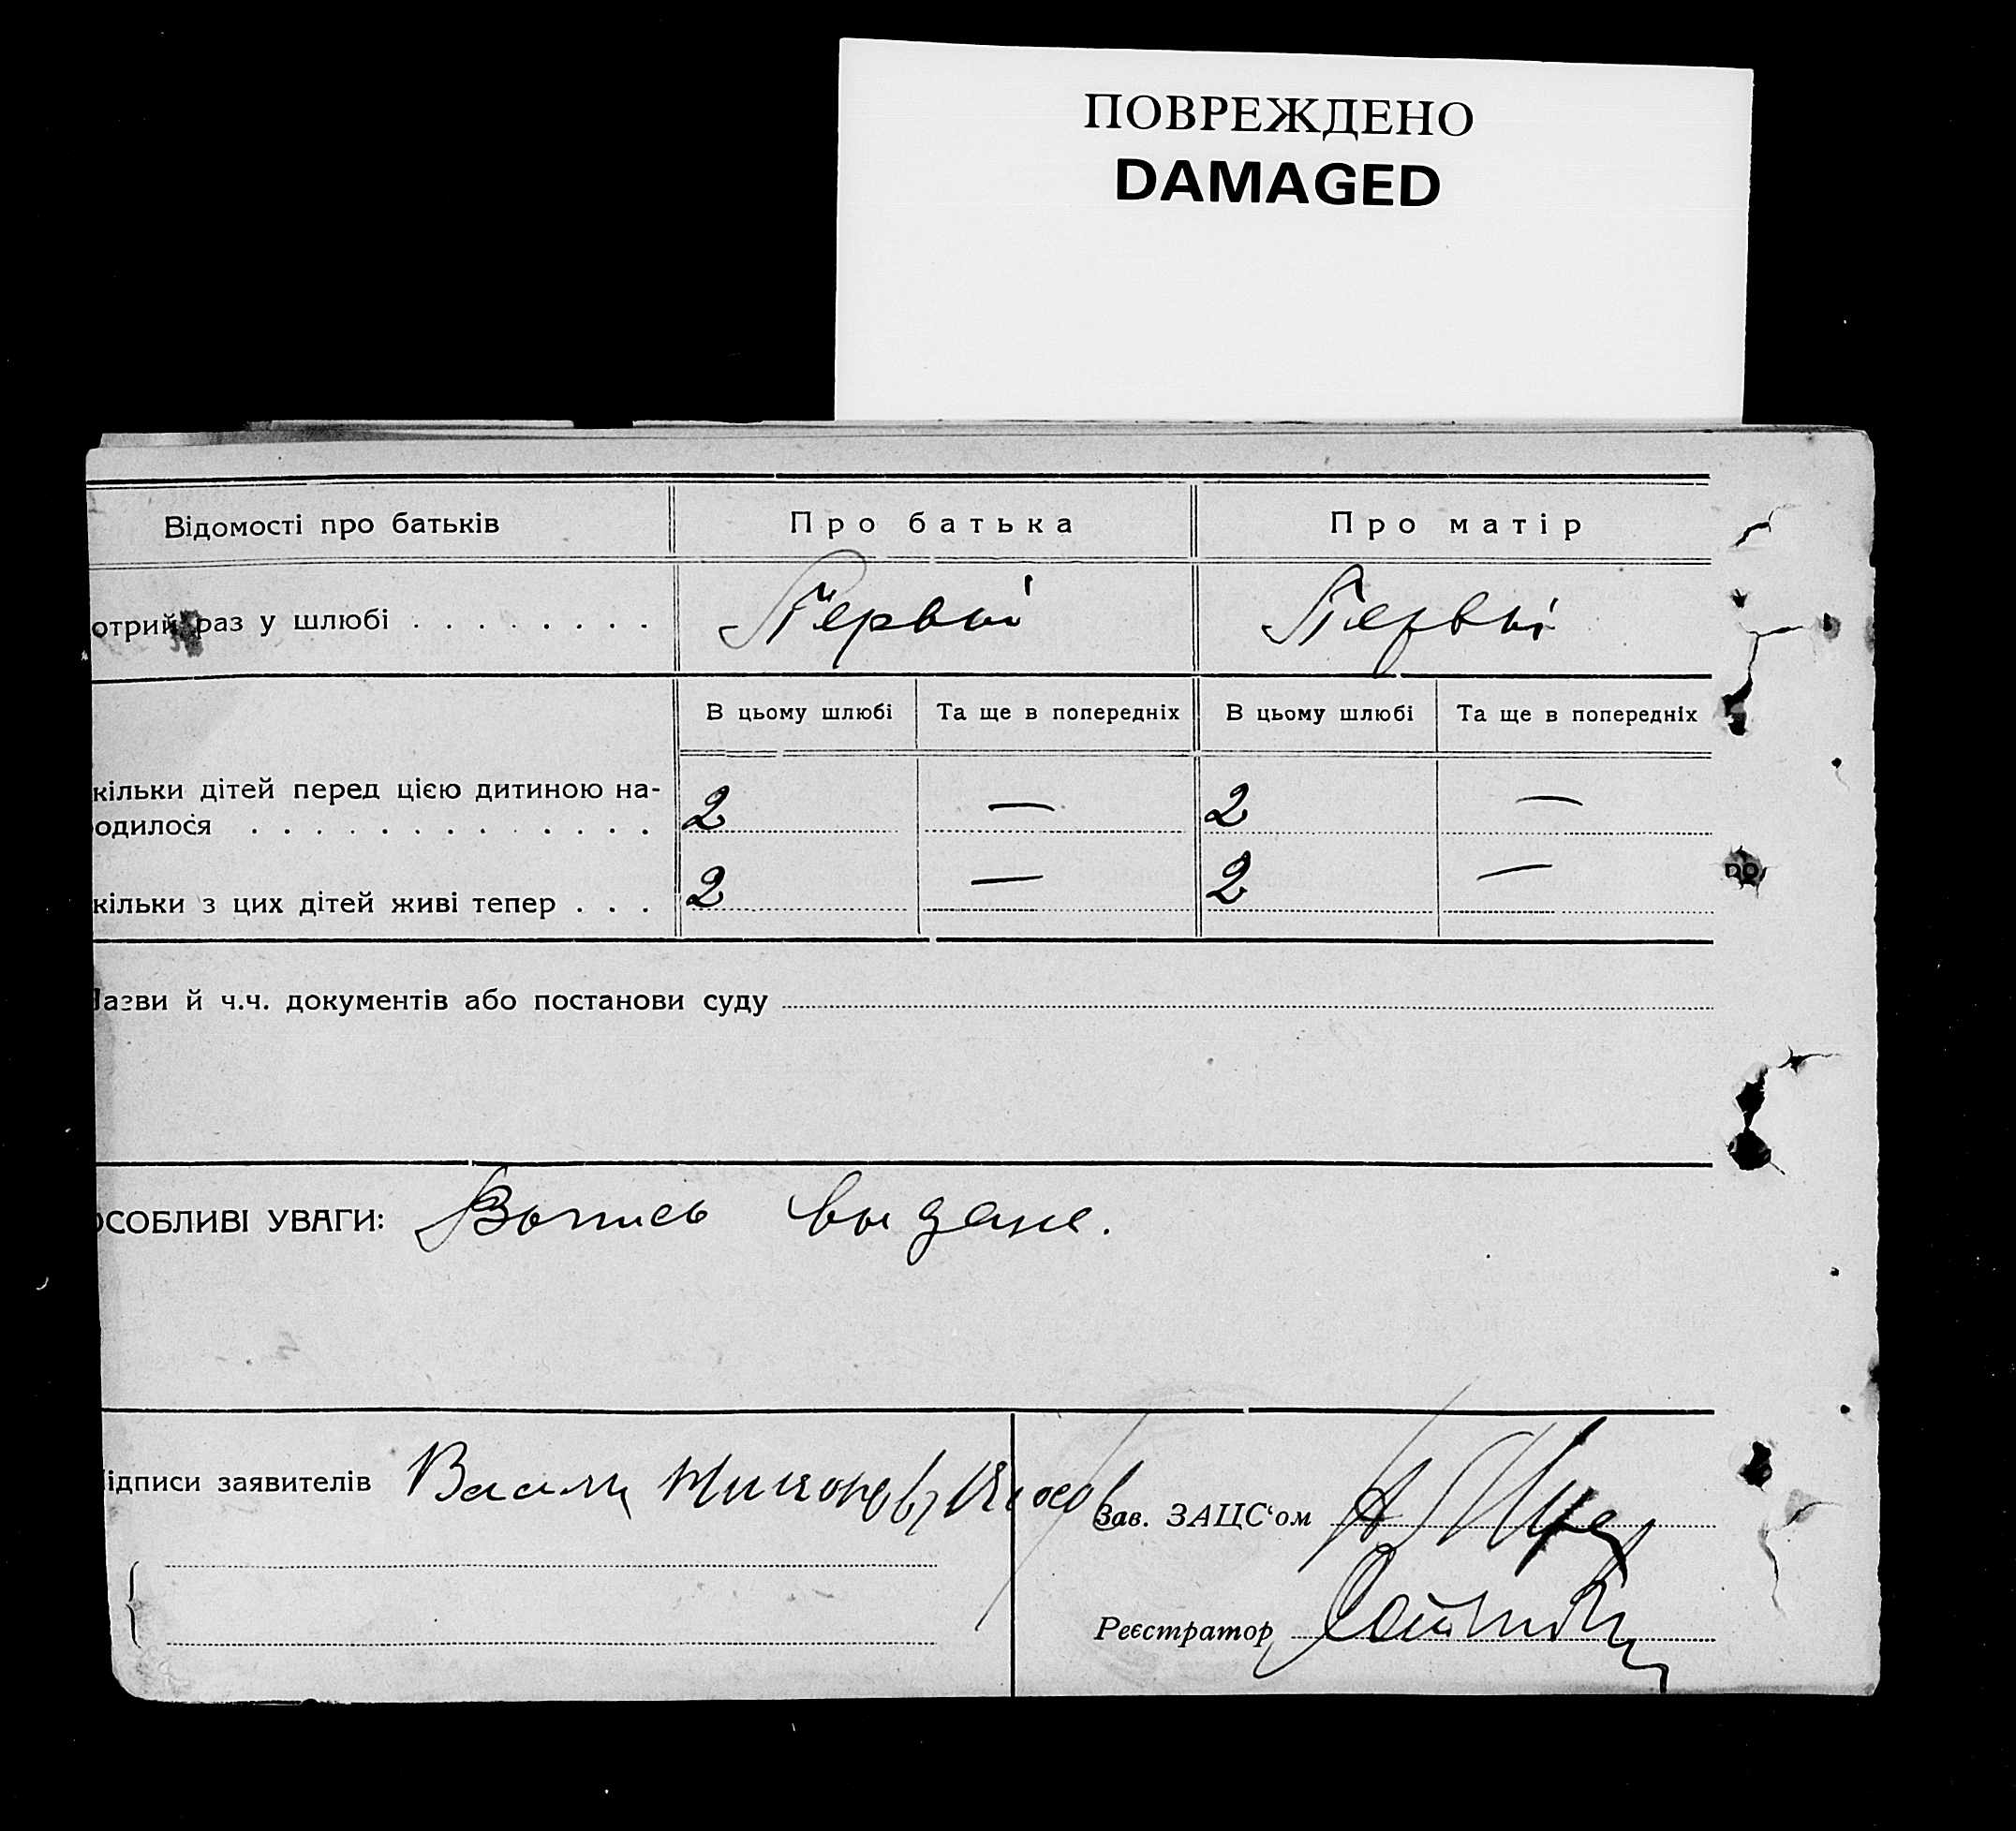 ПОВРЕЖДЕНО
DAMAGED
Відомості про батьків Про батька Про матір
отрий раз у шлюбі . . . . . . . . Первый Первый
В цьому шлюбі Та ще в попередніх В цьому шлюбі Та ще в попередніх
кільки дітей перед цією дитиною на-
одилося . . . . . . . . . . . . . 2 — 2 —
кільки з цих дітей живі тепер . . . 2 — 2 —
Назви й ч.ч. документів або постанови суду
ОСОБЛИВІ УВАГИ: Выпись выдана.
ідписи заявителів
Зав. ЗАЦС‘ом
Реєстратор